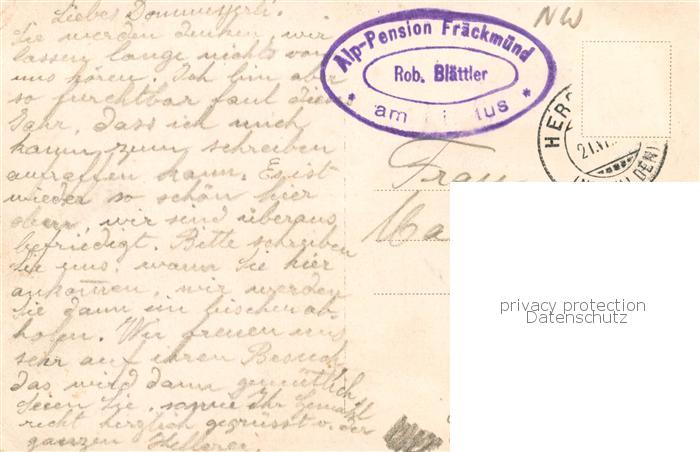 Liebes
Sie werden denken, wir
lassen lange nichts von
uns hören. Ich bin aber
so furchtbar faul dieses
Jahr, dass ich mich
kaum zum schreiben
aufraffen kann. Es ist
wieder so schön hier
oben, wir sind überaus
befriedigt. Bitte schreiben
Sie uns, wann Sie hier
ankommen, wir werden
Sie dann im ab-
holen. Wir freuen uns
sehr auf ihren Besuch,
das wird dann gemütlich
Seien Sie, sowie Ihr Gemahl
recht herzlich gegrüsst v. der
ganzen
Alp-Pension Fräckmünd
Rob. Blättler
* am Pilatus *
NW
HER
21.VI
DEN)
Frau
privacy protection
Datenschutz